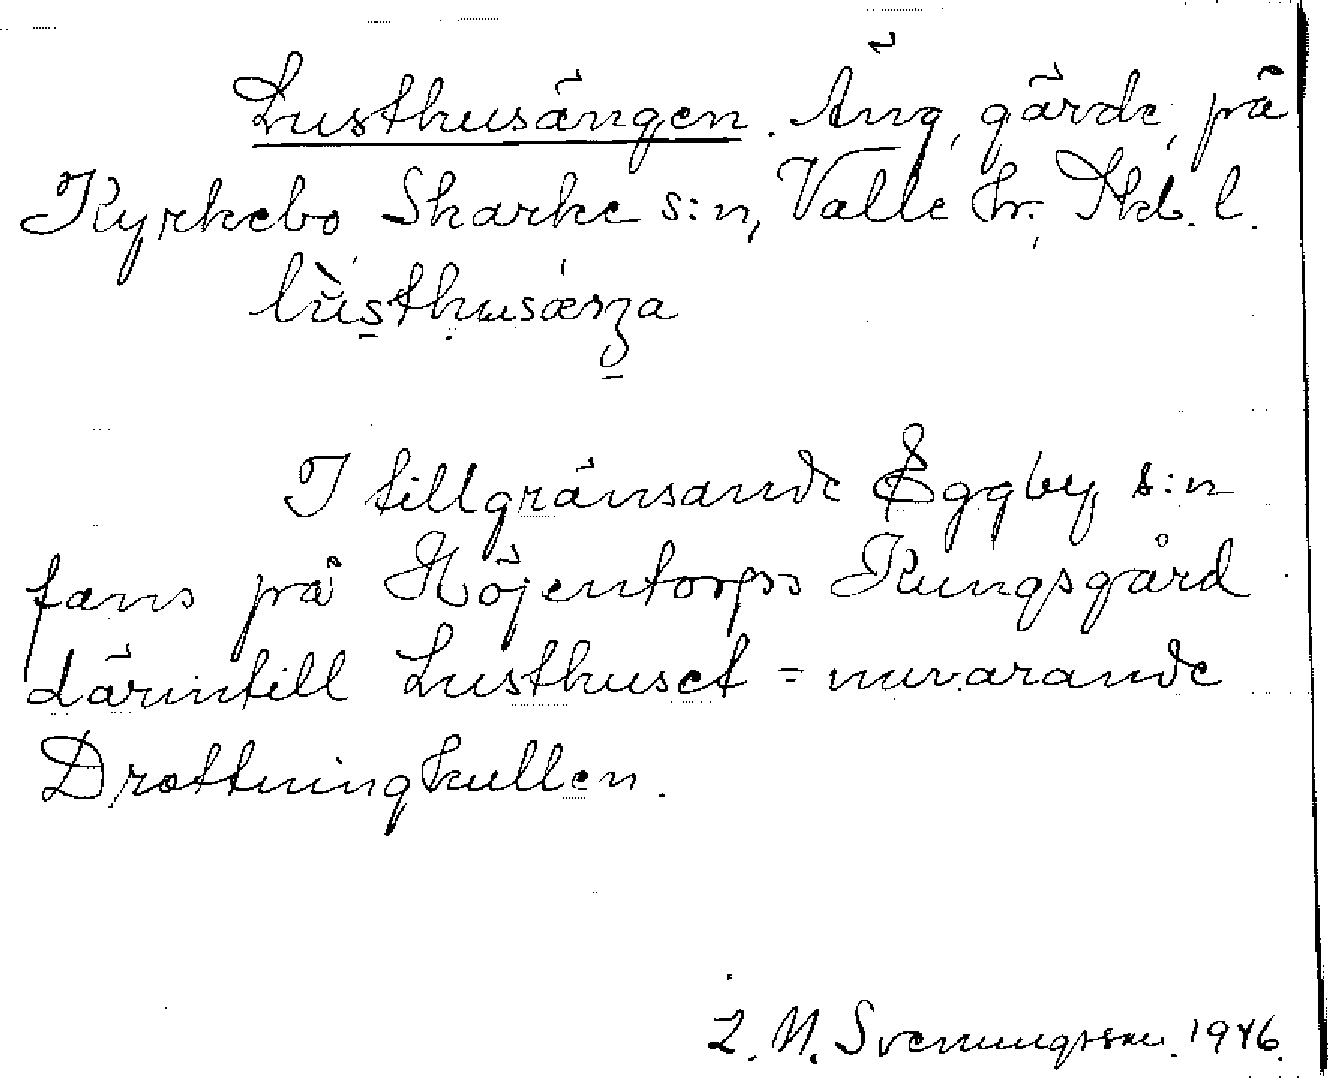 Lusthusängen. Äng, gärde, på
Kyrkebo, Skarke s:n, Valle hr., Skb. l.
I tillgränsande Eggby s:n
fans på Höjentorps Kungsgård
därintill Lusthuset = nuvarande
Drottningkullen.
L. M. Svenungsson. 1946.